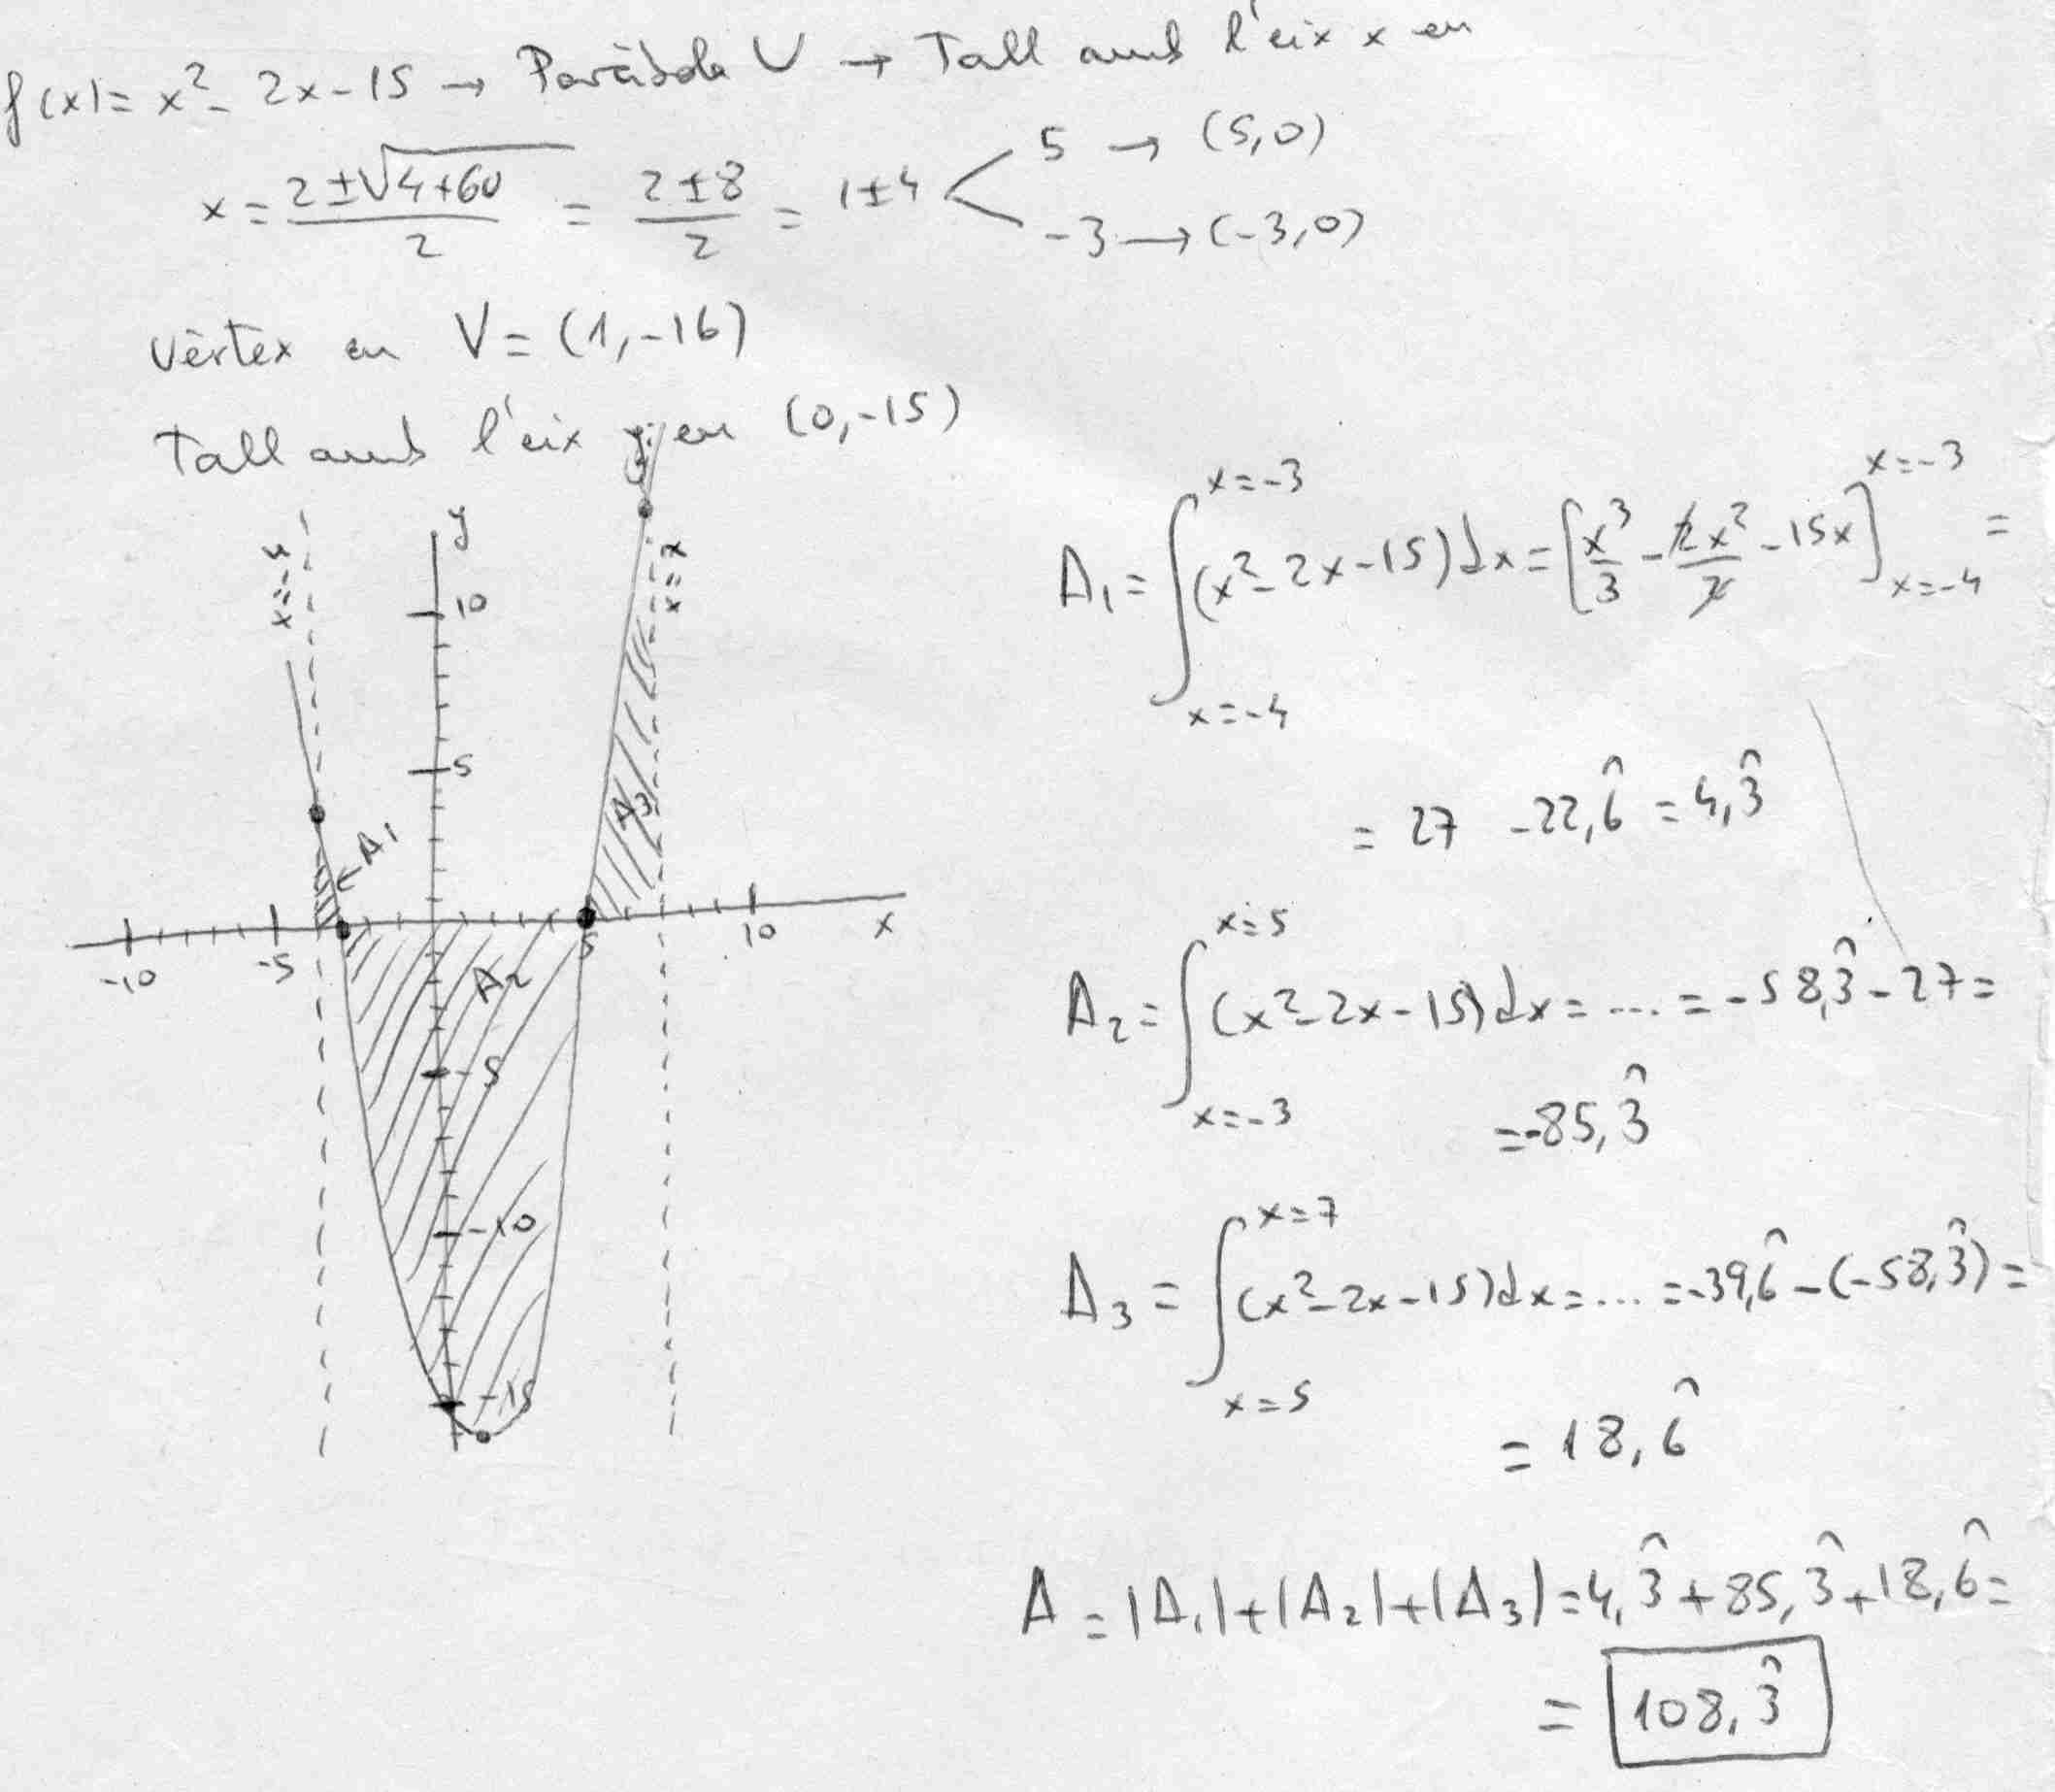 f(x)= x²- 2x-15 → Paràbola U → Tall amb l'eix x en
x = (2±√(4+60))/2 = (2±8)/2 = 1±4 < 5 → (5,0)
-3 → (-3,0)
Vèrtex en V= (1,-16)
Tall amb l'eix y en (0,-15)
x=-4
y
x=7
10
5
A1
A3
-10
-5
5
10
x
A2
-5
-10
-15
A₁ = ∫ x=-4 x=-3 (x²-2x-15)dx = [x³/3 - 2x²/2 -15x] x=-4 x=-3 =
= 27 -22,6̂ = 4,3̂
A₂ = ∫ x=-3 x=5 (x²-2x-15)dx = .... = -58,3̂-27=
=-85,3̂
A₃ = ∫ x=5 x=7 (x²-2x-15)dx = .... =-39,6̂-(-58,3̂)=
= 18,6̂
A = |A₁|+|A₂|+|A₃|=4,3̂+85,3̂+18,6̂=
= 108,3̂